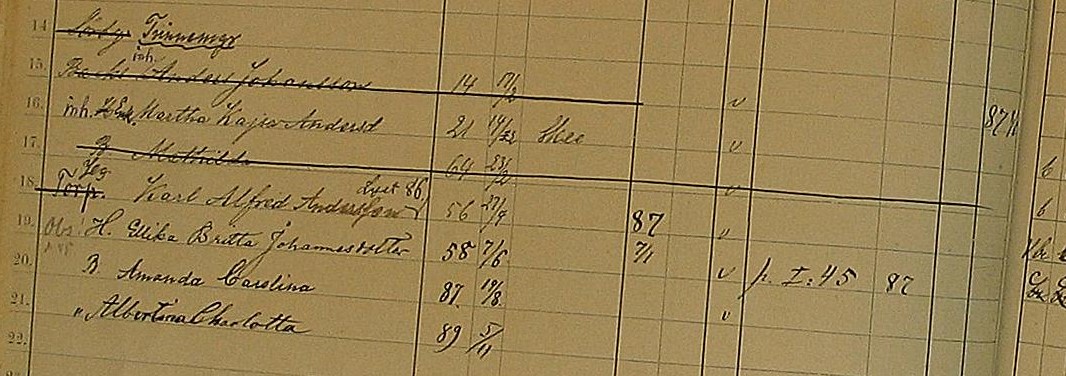 14
inh.
15. Anders Johansson 14 17/2 v
16. inh. Enk. Martha Kajsa Andersd 21 14/12 v 87
17. B Mathilda 64 23/2 v 6
18. Torp. Karl Alfred Andersson 56 27/9 87 " 6
19. Obs H. Ulrika Britta Johannesdotter 58 7/6 7/1
20. B. Amanda Carolina 87. 19/8 v p. I: 45 87
21. " Albertina Charlotta 89 5/11 v
22.